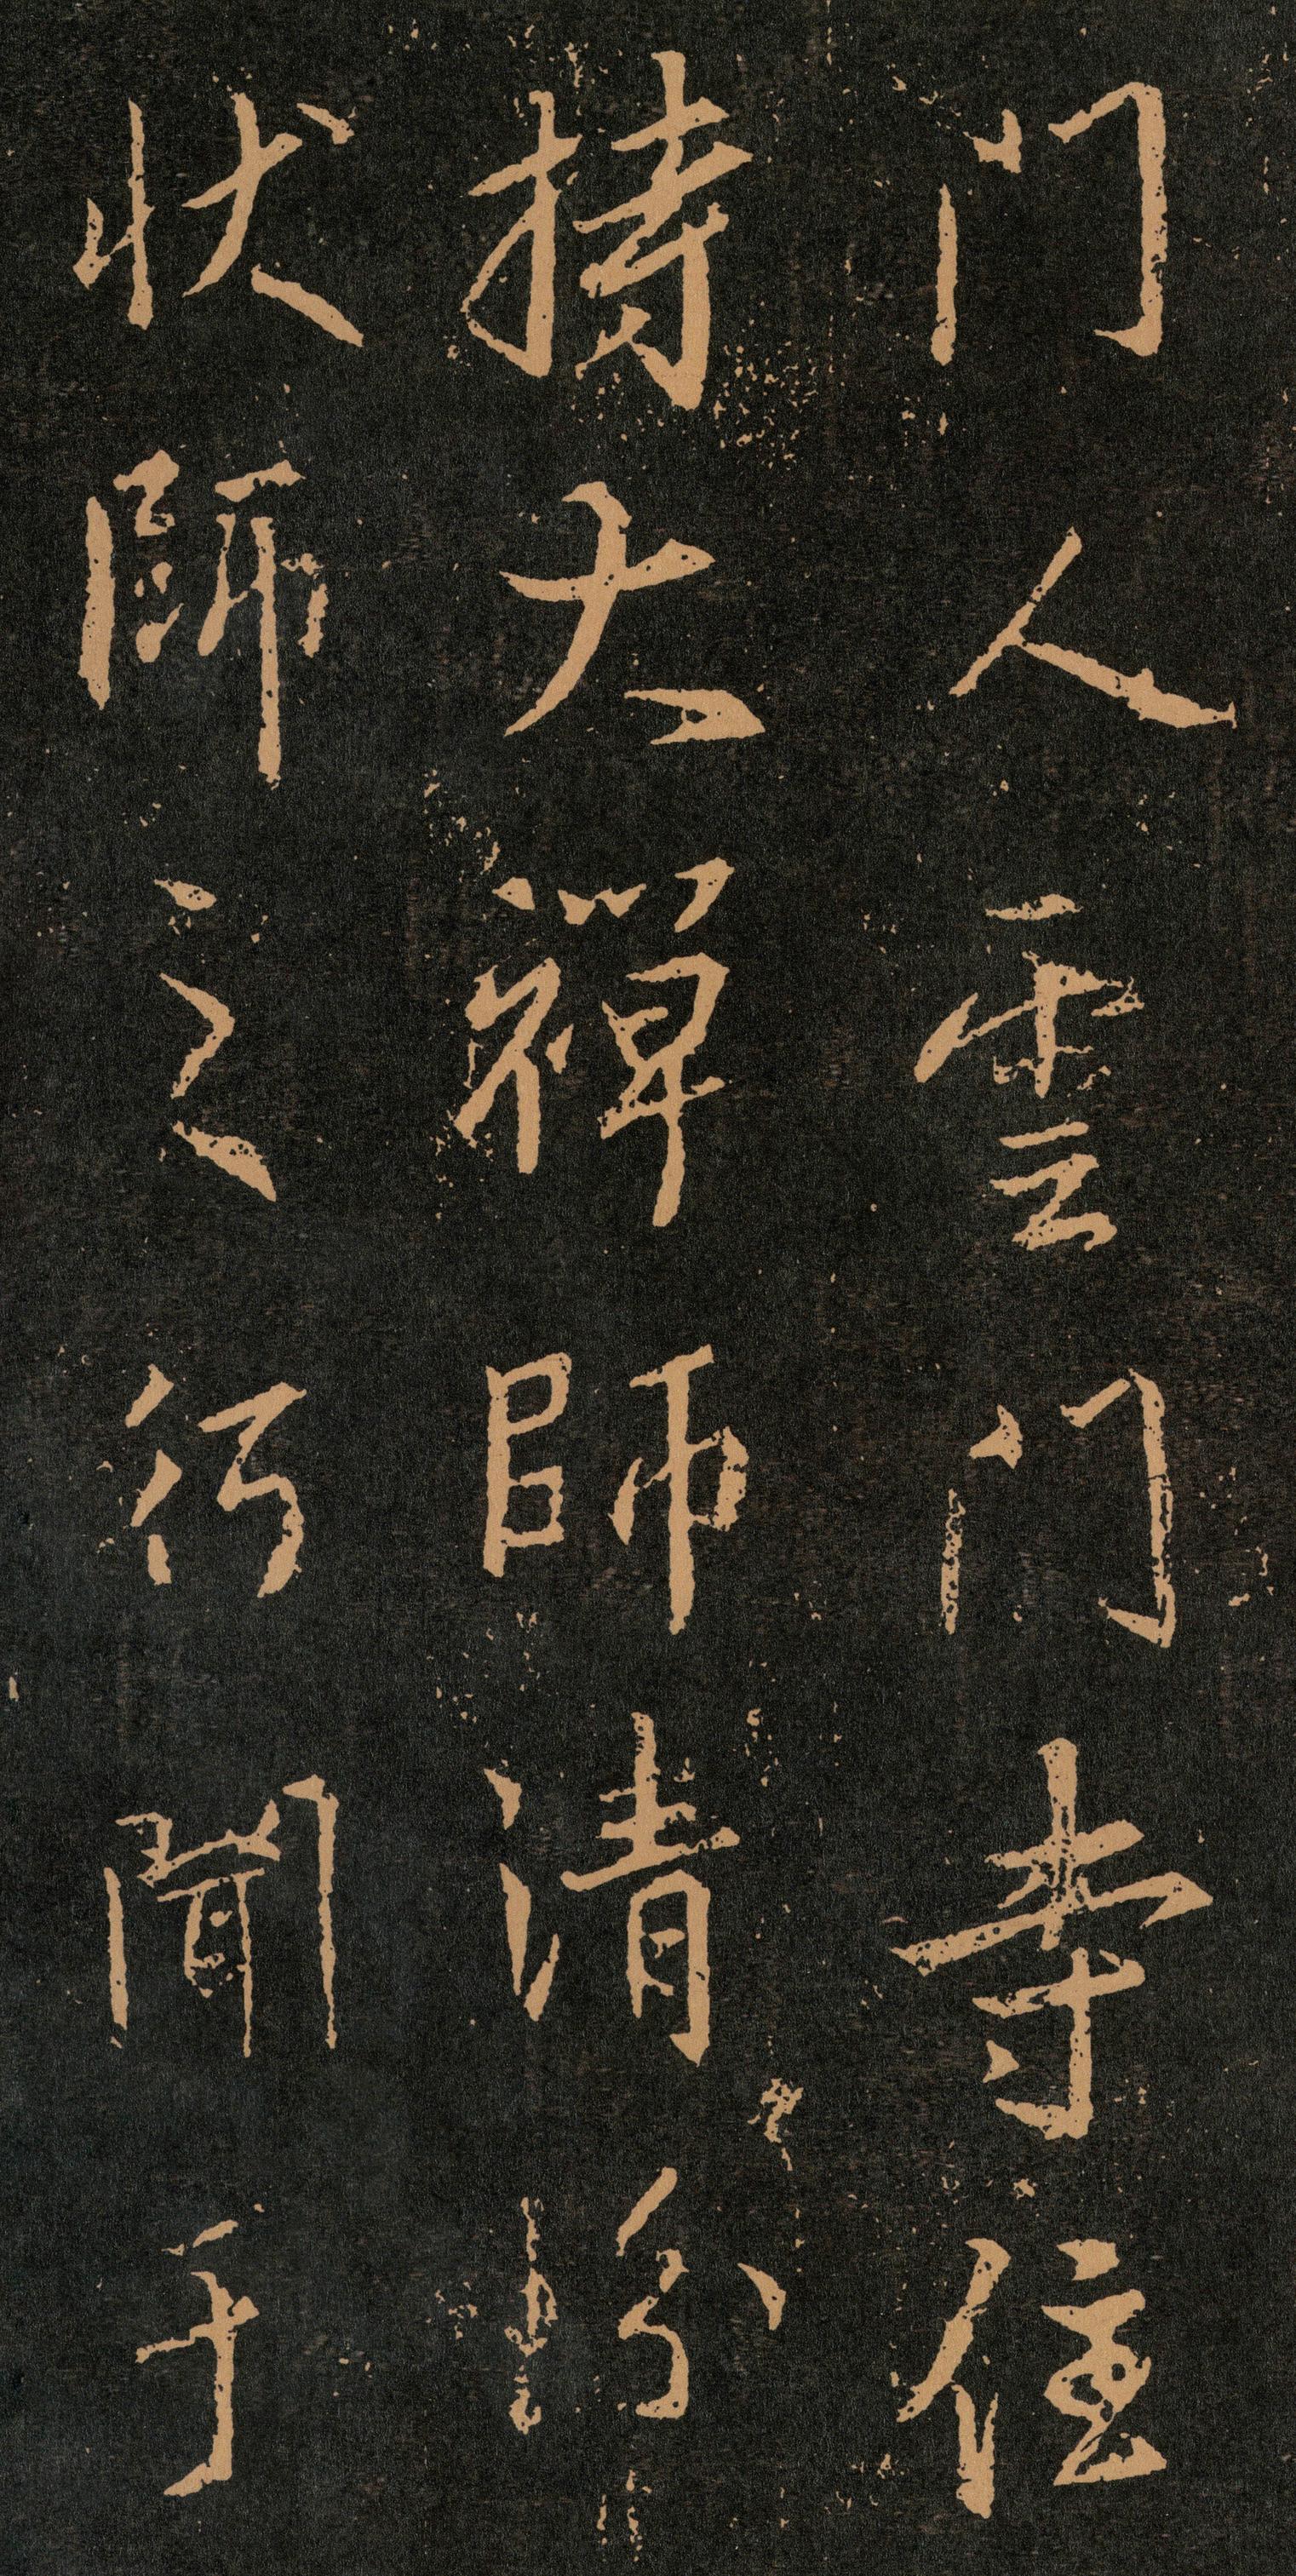 門人雲門寺住
持大禪師清
狀師之行聞于